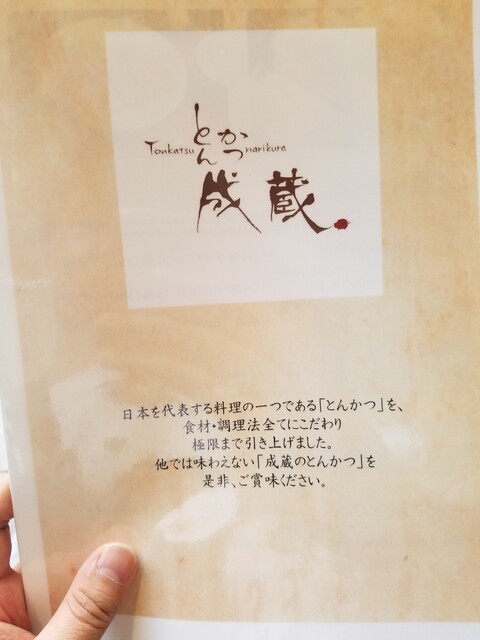 とんかつ
Tonkatsu narikura
成蔵
日本を代表する料理の一つである「とんかつ」を、
食材・調理法全てにこだわり
極限まで引き上げました。
他では味わえない「成蔵のとんかつ」を
是非、ご賞味ください。